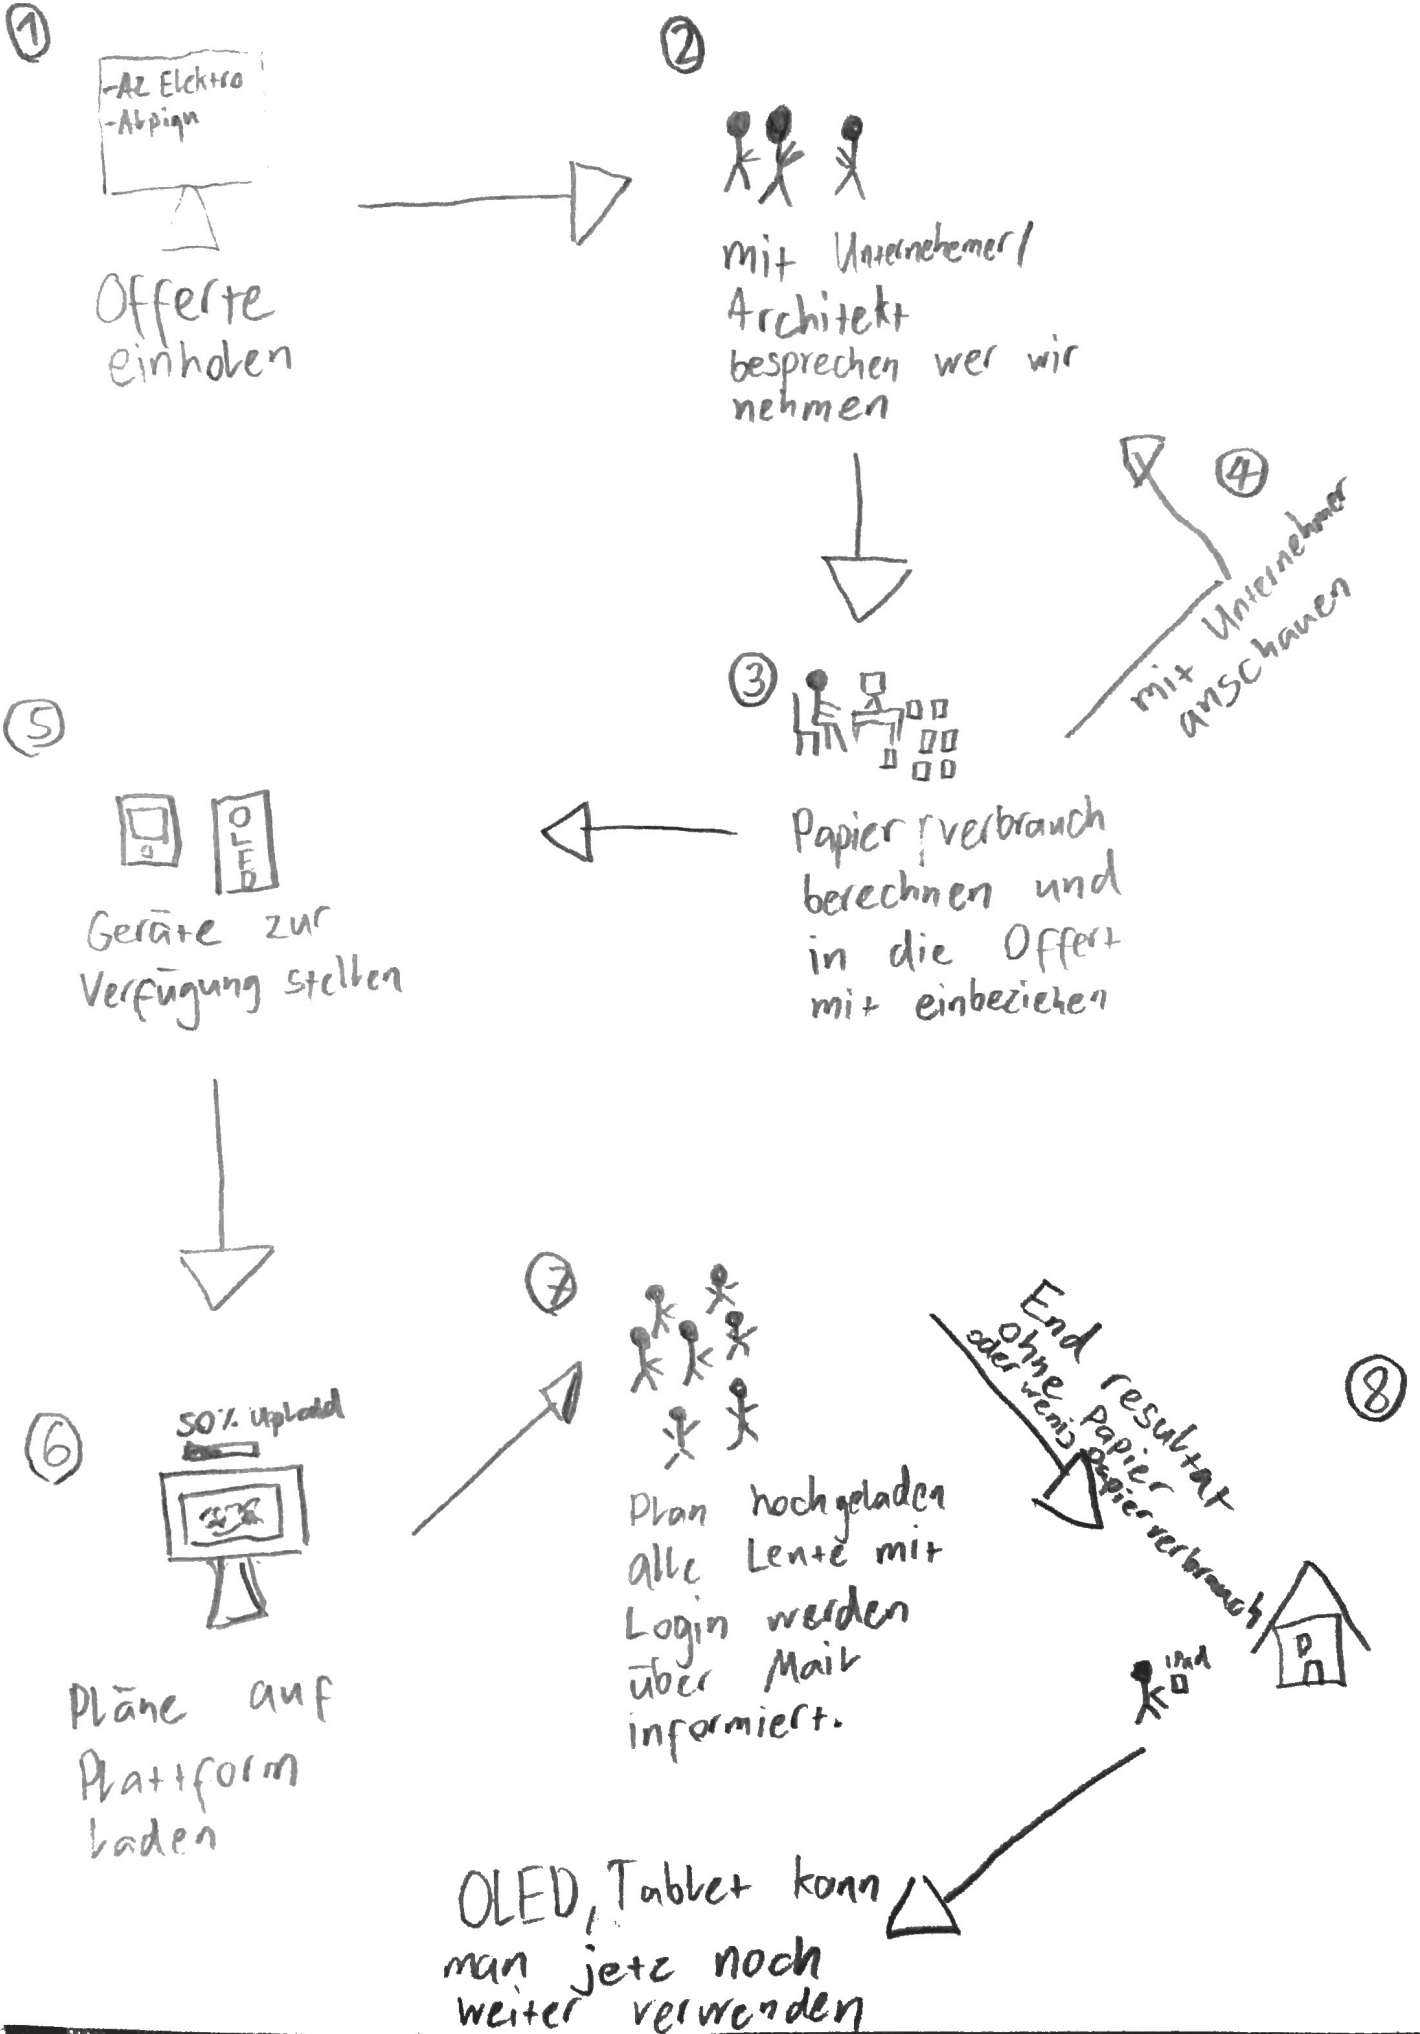 1
-AZ Elektro
-Alpiqn
Offerte
einholen
2
mit Unternehemer/
Architekt
besprechen wer wir
nehmen
3
Papierverbrauch
berechnen und
in die Offert
mit einbeziehen
4
mit Unternehmer
anschauen
5
OLED
Geräte zur
Verfügung stellen
6
50% Upload
Pläne auf
Plattform
laden
7
Plan hochgeladen
alle Leute mit
Login werden
über Mail
informiert.
8
End resultat
ohne Papier
oder wenig papierverbrauch
D
IPad
OLED, Tablet kann
man jetz noch
weiter verwenden